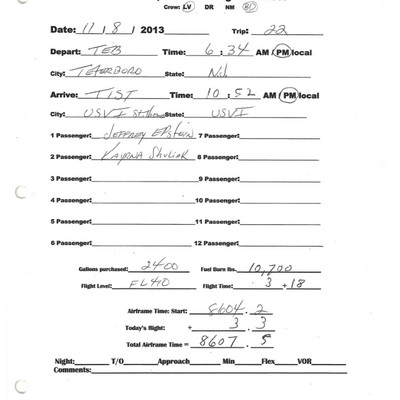 Crew: LV DR NM BD
Date: 11 / 8 / 2013 Trip: 22
Depart: TEB Time: 6:34 AM / PM local
City: TETERBORO State: NJ
Arrive: TIST Time: 10:52 AM / PM local
City: USVI St. State: USVI
1 Passenger: JEFFREY EPSTEIN 7 Passenger:
2 Passenger: KARYNA SHULIAK 8 Passenger:
3 Passenger: 9 Passenger:
4 Passenger: 10 Passenger:
5 Passenger: 11 Passenger:
6 Passenger: 12 Passenger:
Gallons purchased: 2400 Fuel Burn lbs. 10,700
Flight Level: FL410 Flight Time: 3 +18
Airframe Time: Start: 8604 . 2
Today's flight: + 3 . 3
Total Airframe Time = 8607 . 5
Night: T/O Approach Min Flex VOR
Comments: